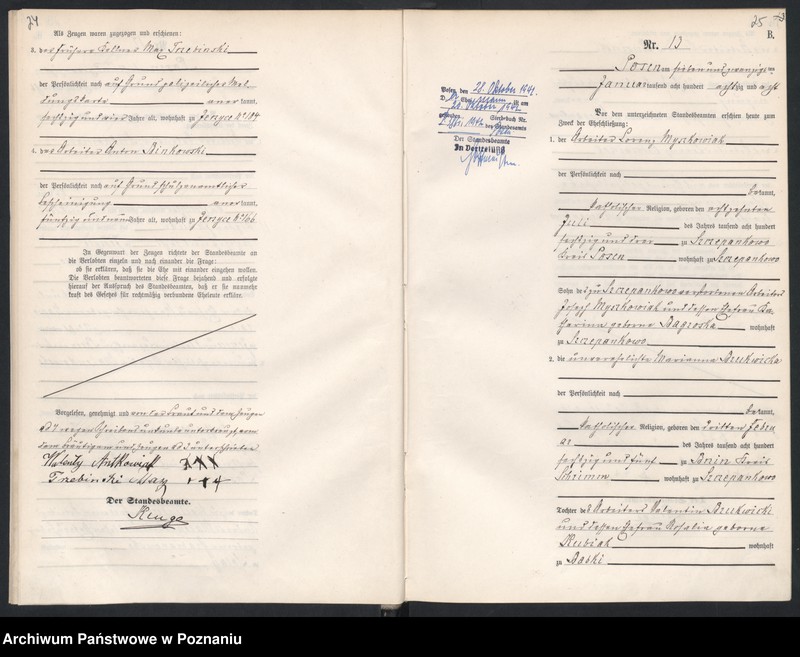 24
Als Zeugen waren zugezogen und erschienen:
3. der frühere Kellner Max Trzebinski
der Persönlichkeit nach auf Grund polizeilicher Mel-
dungskarte anerkannt,
sechzig und vier Jahre alt, wohnhaft zu Jersyce No
4. der Arbeiter Anton Binkowski
der Persönlichkeit nach auf Grund
Bescheinigung anerkannt,
fünfzig und neun Jahre alt, wohnhaft zu Jersyce No 66
In Gegenwart der Zeugen richtete der Standesbeamte an
die Verlobten einzeln und nach einander die Frage:
ob sie erklären, daß sie die Ehe mit einander eingehen wollen.
Die Verlobten beantworteten diese Frage bejahend und erfolgte
hierauf der Ausspruch des Standesbeamten, daß er sie nunmehr
kraft des Gesetzes für rechtmäßig verbundene Eheleute erkläre.
Vorgelesen, genehmigt und von der Braut und dem Zeugen
wegen Schreibensunkunde unterkreuzt, von
dem Bräutigam und Zeugen unterschrieben
Walenty Antkowiak XXX
Trzebinski Max +++
Der Standesbeamte.
25
B.
Nr. 13
Posen am sieben und zwanzigsten
Januar tausend acht hundert achtzig und acht
Vor dem unterzeichneten Standesbeamten erschienen heute zum
Zweck der Eheschließung:
1. der Arbeiter Lorenz Myszkowiak
der Persönlichkeit nach
bekannt,
katholischer Religion, geboren den achtzehnten
Juli des Jahres tausend acht hundert
sechzig und drei zu Szczepankowo
Kreis Posen wohnhaft zu Szczepankowo
Sohn des zu Szczepankowo verstorbenen Arbeiters
Joseph Myszkowiak und dessen Ehefrau Ka-
tharina geborne Bagroska wohnhaft
zu Szczepankowo
2. die unverehelichte Marianna Brukwicka
der Persönlichkeit nach
bekannt,
katholischer Religion, geboren den dritten Febru
ar des Jahres tausend acht hundert
sechzig und fünf zu Bnin Kreis
Schrimm wohnhaft zu Szczepankowo
Tochter des Arbeiters Valentin Brukwicki
und dessen Ehefrau Rosalie geborne
Kubiak wohnhaft
zu Babki
Posen, den 28. Oktober 1941.
Der Standesbeamte
In Vertretung
Archiwum Państwowe w Poznaniu